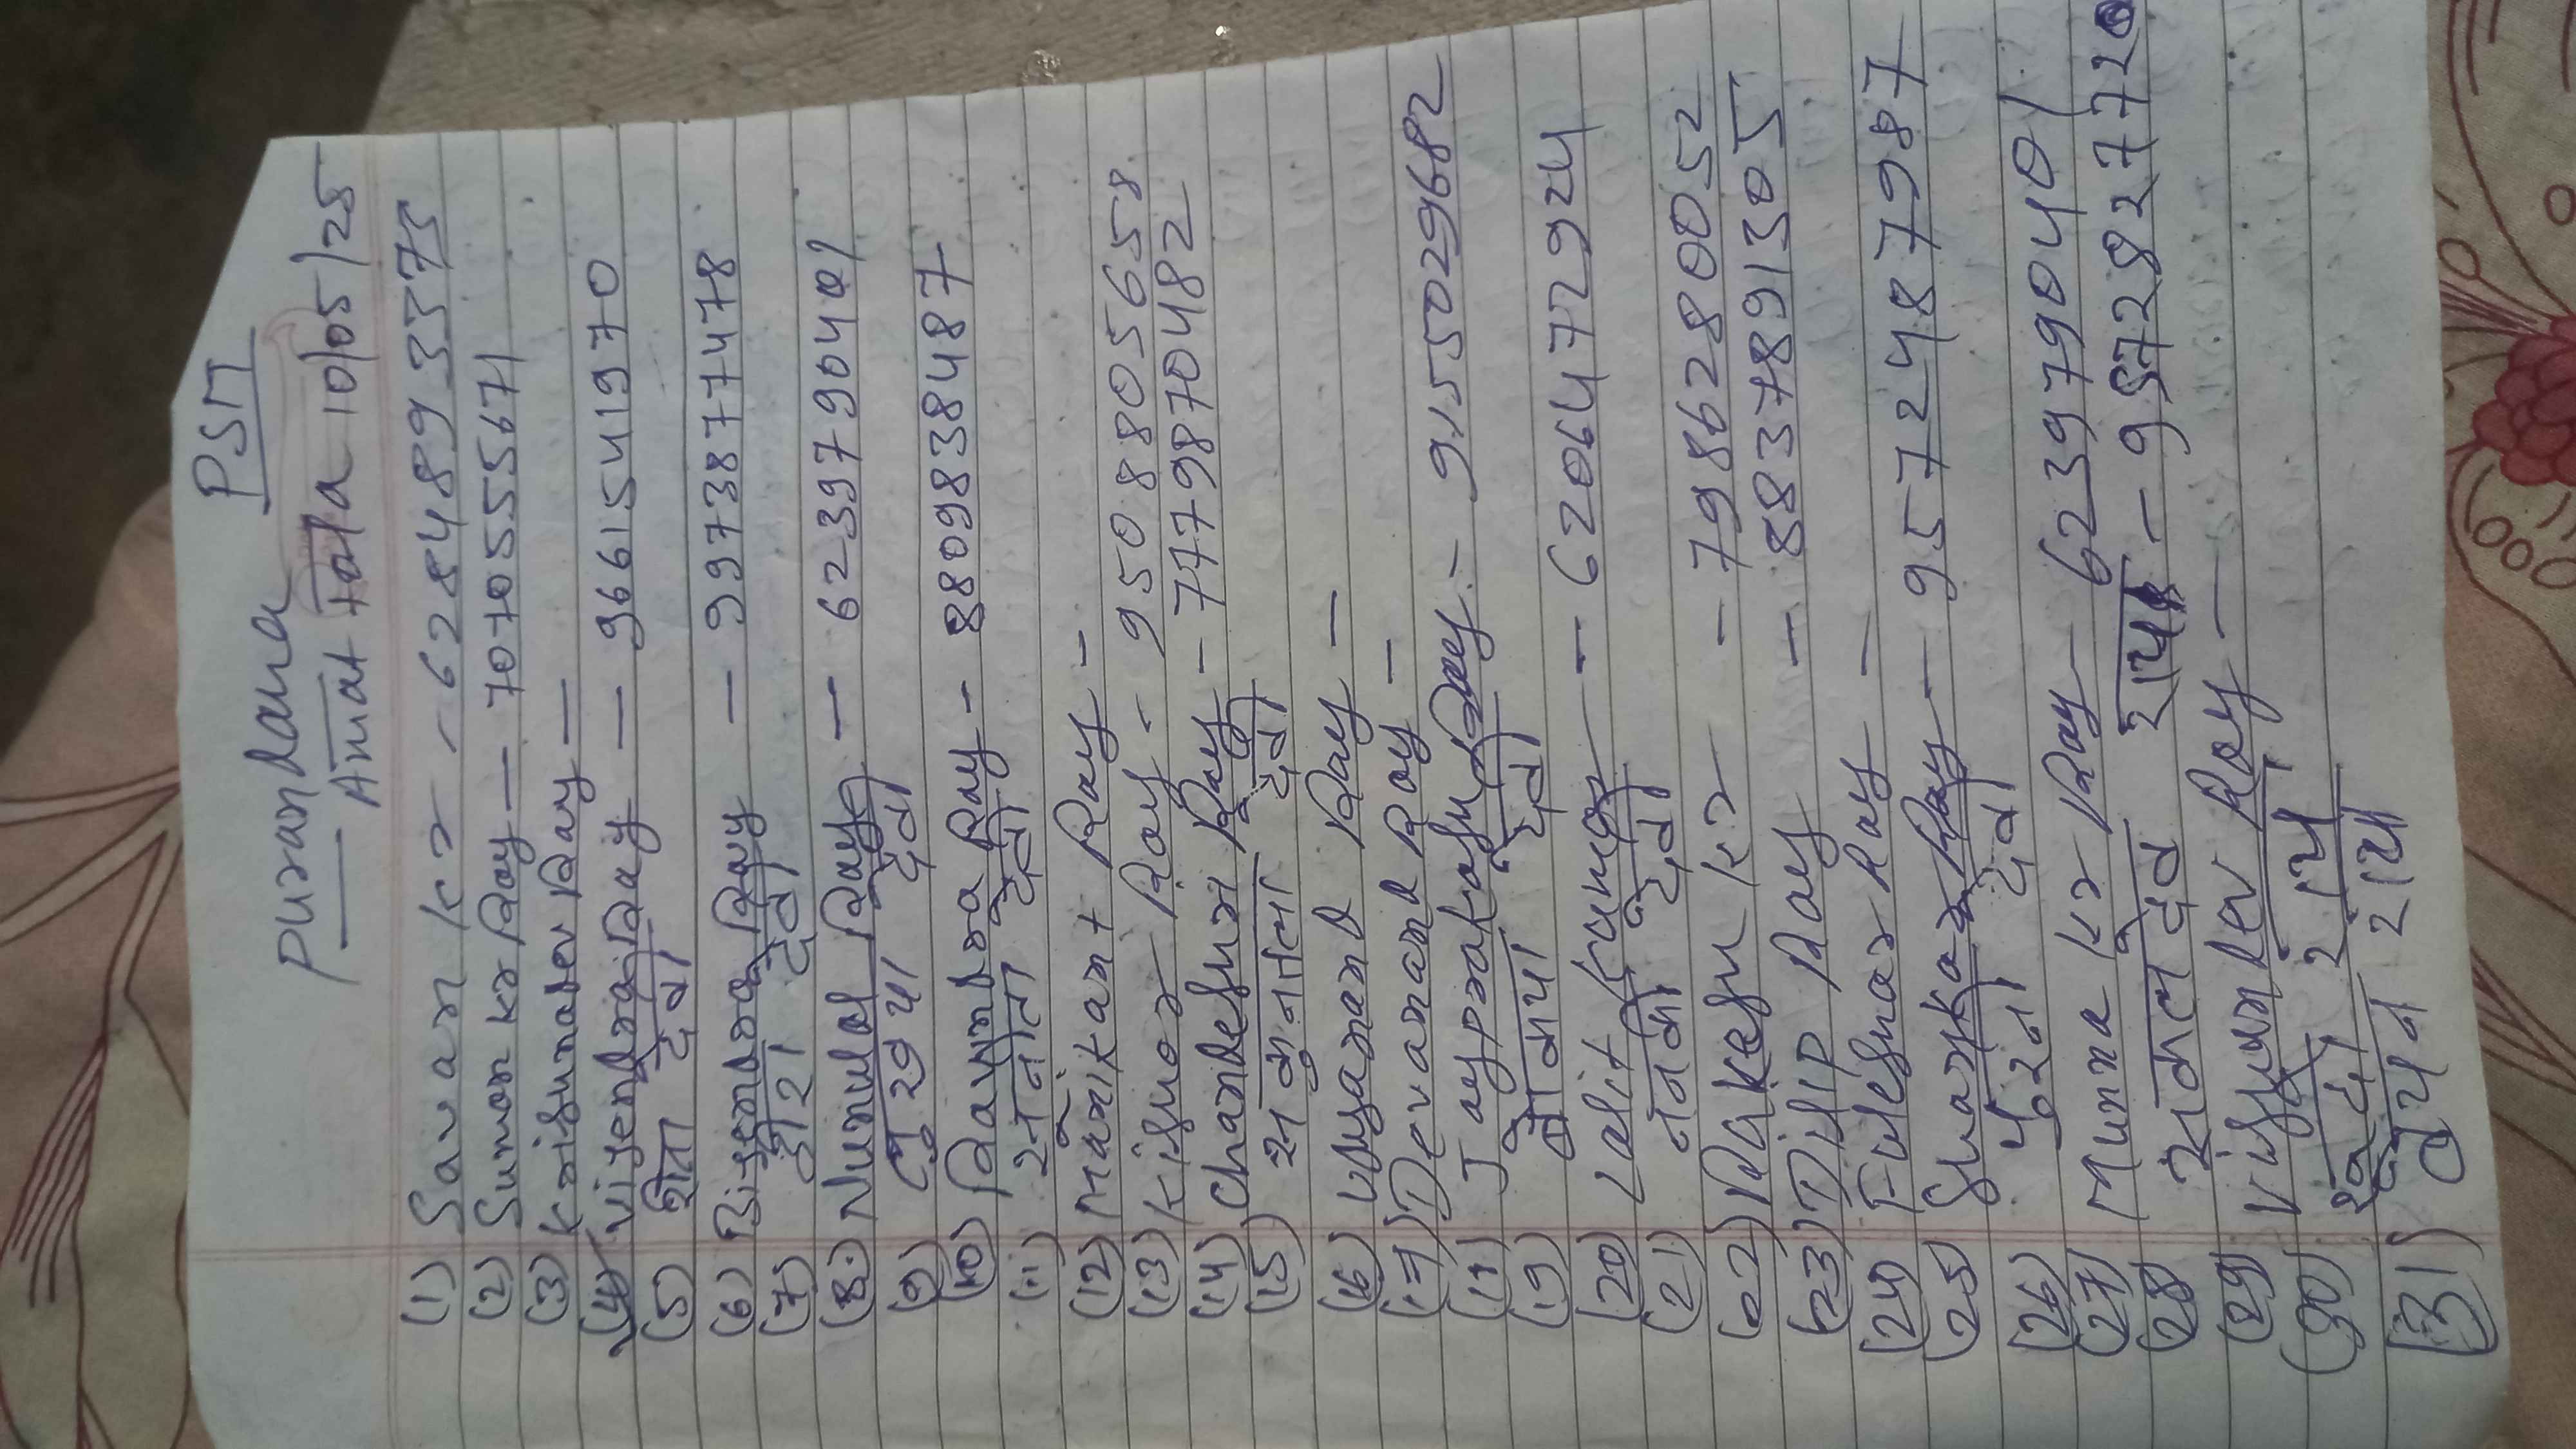 PSM
Purandana
Amat tola 10/05/25
(1) Savan kr - 6284893575
(2) Suman kr Ray - 7070555671
(3) Krishnadev Ray -
(4) Vijendra Ray - 9661541970
(5) शिला देवी
(6) Bijendra Ray - 9973877478
(7) हीरा देवी
(8) Nunulal Ray - 6239790401
(9) देवी
(10) Ravindra Ray - 8809838487
(11) सुनीता देवी
(12) Manikant Ray -
(13) Kishor Ray - 9508805658
(14) Chandeshur Ray - 7779870482
(15) देवी
(16) Ray -
(17) Devanand Ray -
(18) Jayprakash Ray - 9155029682
(19) देवी
(20) Lalit Kumar - 6206477294
(21) देवी
(22) Rakesh kr - 7986280052
(23) Dilip Ray - 8837891305
(24) Fuleshar Ray -
(25) Shankar Ray - 9572487987
(26) देवी
(27) Munna kr Ray - 6239790401
(28) देव राय - 9572827720
(29) Ray -
(30) राय
(31) राय